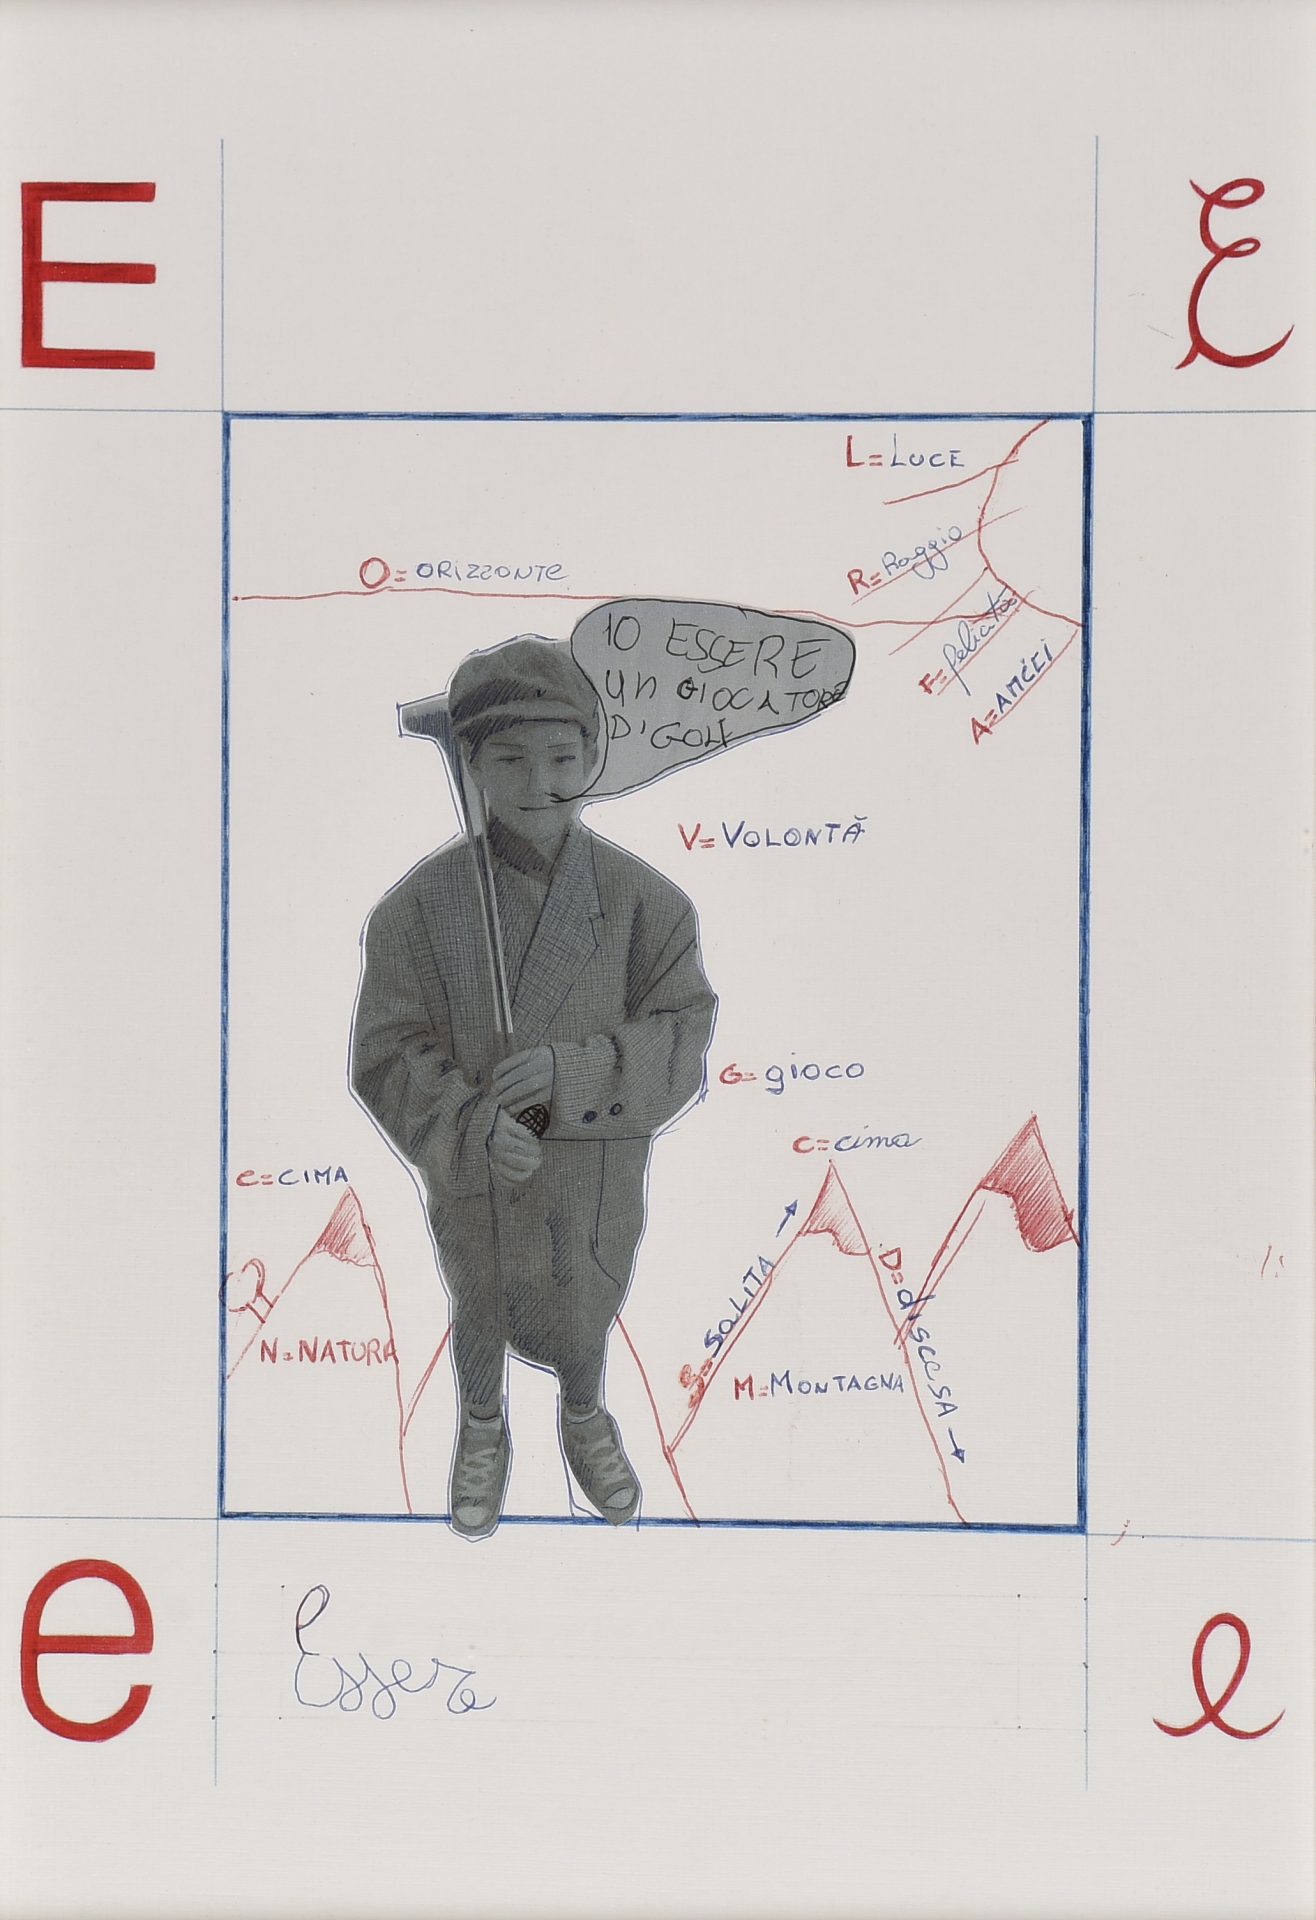 E
Ɛ
L=LUCE
O=ORIZZONTE
R=Raggio
IO ESSERE
Un GIOCATORE
D'GOLF
F=felicità
A=AMCEI
V=VOLONTĂ
G=gioco
C=cima
C=CIMA
S=SALITA →
D=discesa →
N=NATURA
M=MONTAGNA
e
Essere
e